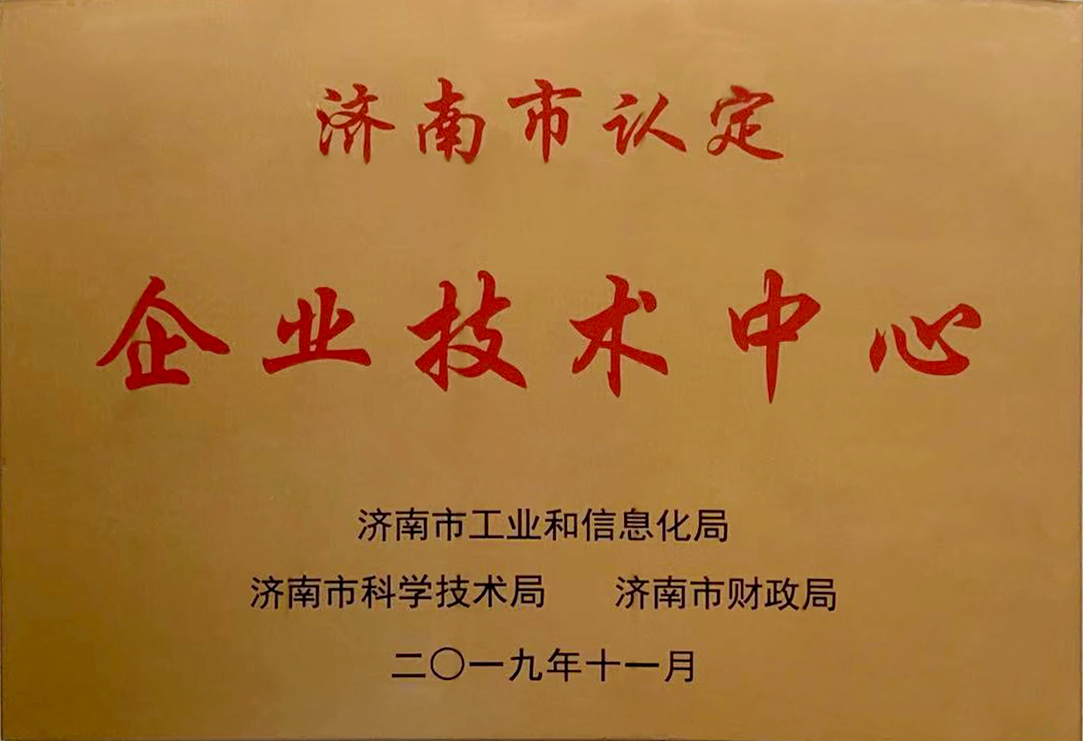 济南市认定
企业技术中心
济南市工业和信息化局
济南市科学技术局 济南市财政局
二〇一九年十一月